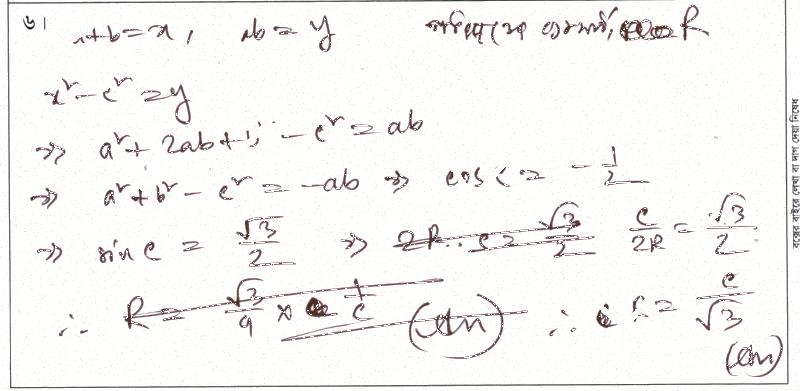 ৬। a+b=x, ab=y R
x² - c² = y
⇒ a² + 2ab + b² - c² = ab
⇒ a² + b² - c² = -ab ⇒ cos C = -1/2
⇒ sin C = √3/2 ⇒ 2R · c = √3/2 c/2R = √3/2
∴ R = √3/9 × 1/c (Ans) ∴ R = c/√3
(Ans)
বক্সের বাইরে লেখা বা দাগ দেয়া নিষেধ